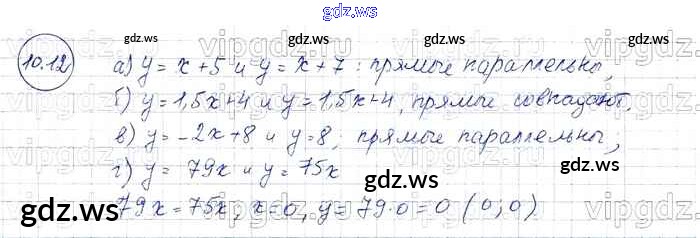 gdz.ws
gdz.ws gdz.ws gdz.ws
10.12
а) y = x + 5 и y = x + 7 : прямые параллельны,
б) y = 1,5x + 4 и y = 1,5x + 4, прямые совпадают,
в) y = -2x + 8 и y = 8; прямые параллельны,
г) y = 79x и y = 75x
79x = 75x, x = 0, y = 79·0 = 0 (0; 0)
gdz.ws gdz.ws gdz.ws